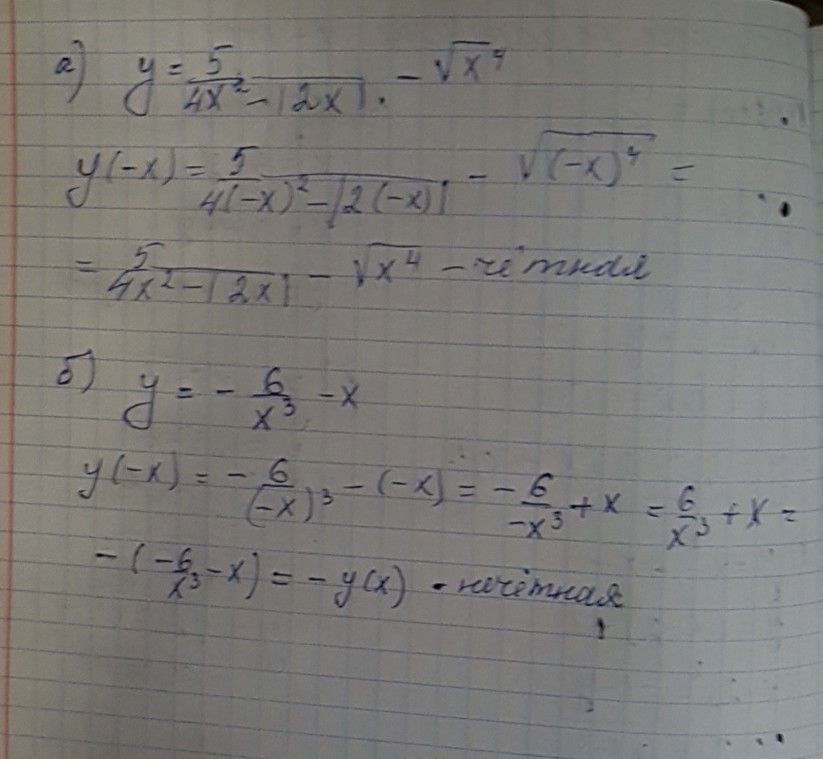 а) y = 5/(4x² - |2x|) - √x⁴
y(-x) = 5/(4(-x)² - |2(-x)|) - √(-x)⁴ =
= 5/(4x² - |2x|) - √x⁴ - чётная
б) y = - 6/x³ - x
y(-x) = - 6/(-x)³ - (-x) = - 6/-x³ + x = 6/x³ + x =
- (-6/x³ - x) = - y(x) - нечётная